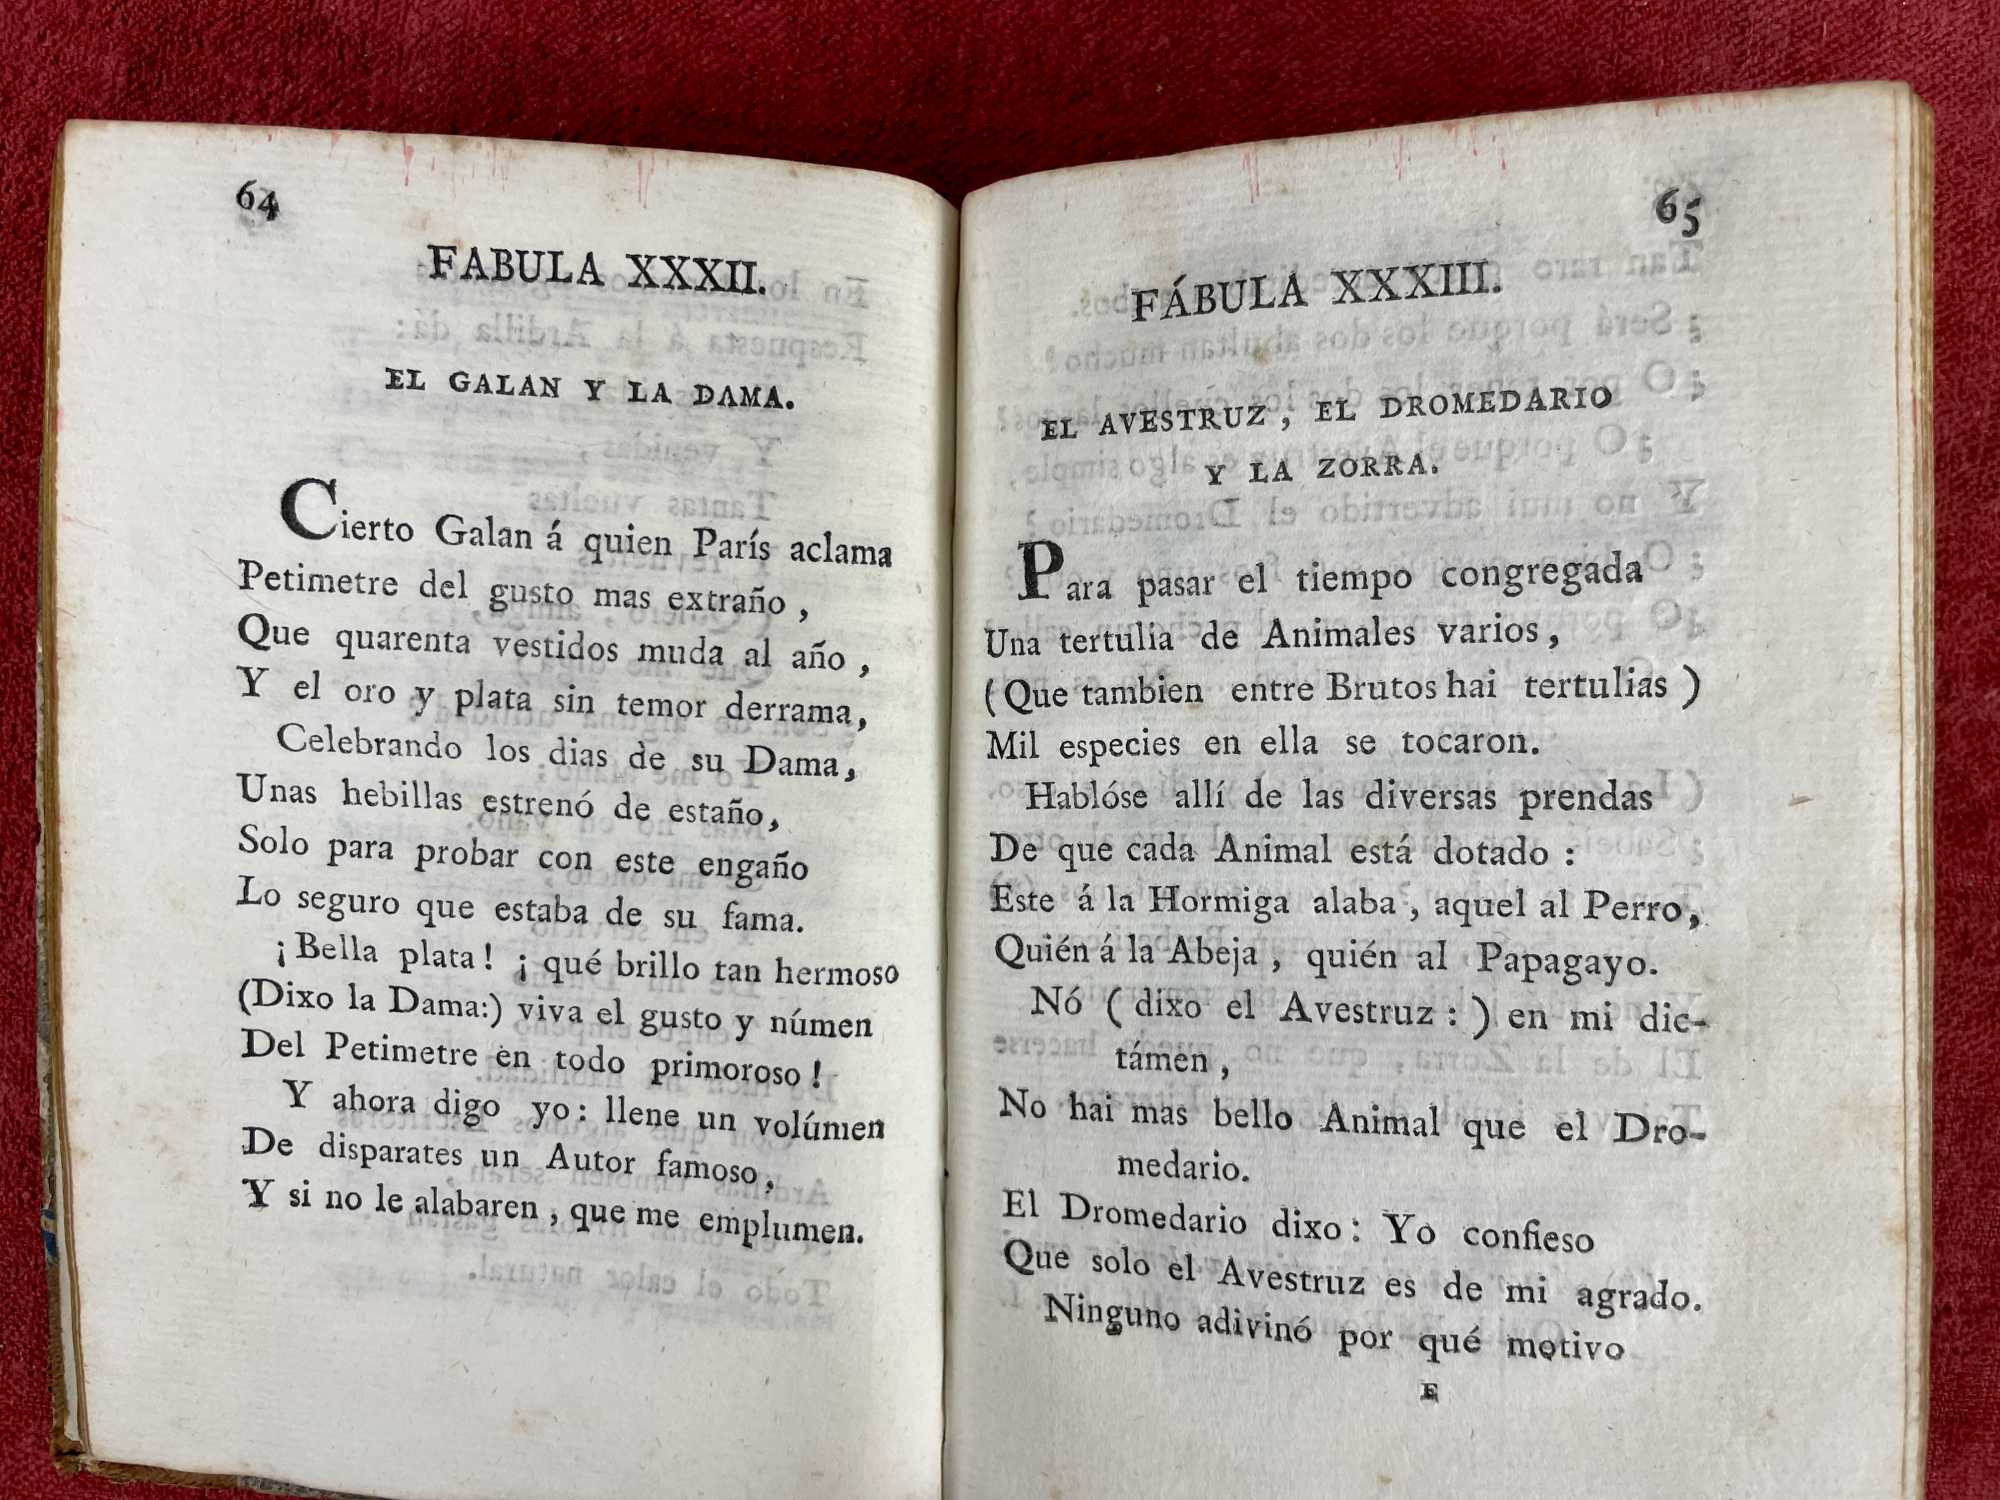 64
FABULA XXXII.
EL GALAN Y LA DAMA.
Cierto Galan á quien París aclama
Petimetre del gusto mas extraño ,
Que quarenta vestidos muda al año ,
Y el oro y plata sin temor derrama,
Celebrando los dias de su Dama,
Unas hebillas estrenó de estaño,
Solo para probar con este engaño
Lo seguro que estaba de su fama.
¡Bella plata! ¡ qué brillo tan hermoso
(Dixo la Dama:) viva el gusto y númen
Del Petimetre en todo primoroso!
Y ahora digo yo: llene un volúmen
De disparates un Autor famoso,
Y si no le alabaren , que me emplumen.
65
FÁBULA XXXIII.
EL AVESTRUZ , EL DROMEDARIO
Y LA ZORRA.
Para pasar el tiempo congregada
Una tertulia de Animales varios,
(Que tambien entre Brutos hai tertulias )
Mil especies en ella se tocaron.
Hablóse allí de las diversas prendas
De que cada Animal está dotado :
Este á la Hormiga alaba , aquel al Perro,
Quién á la Abeja , quién al Papagayo.
Nó ( dixo el Avestruz : ) en mi dic-
támen ,
No hai mas bello Animal que el Dro-
medario.
El Dromedario dixo: Yo confieso
Que solo el Avestruz es de mi agrado.
Ninguno adivinó por qué motivo
E